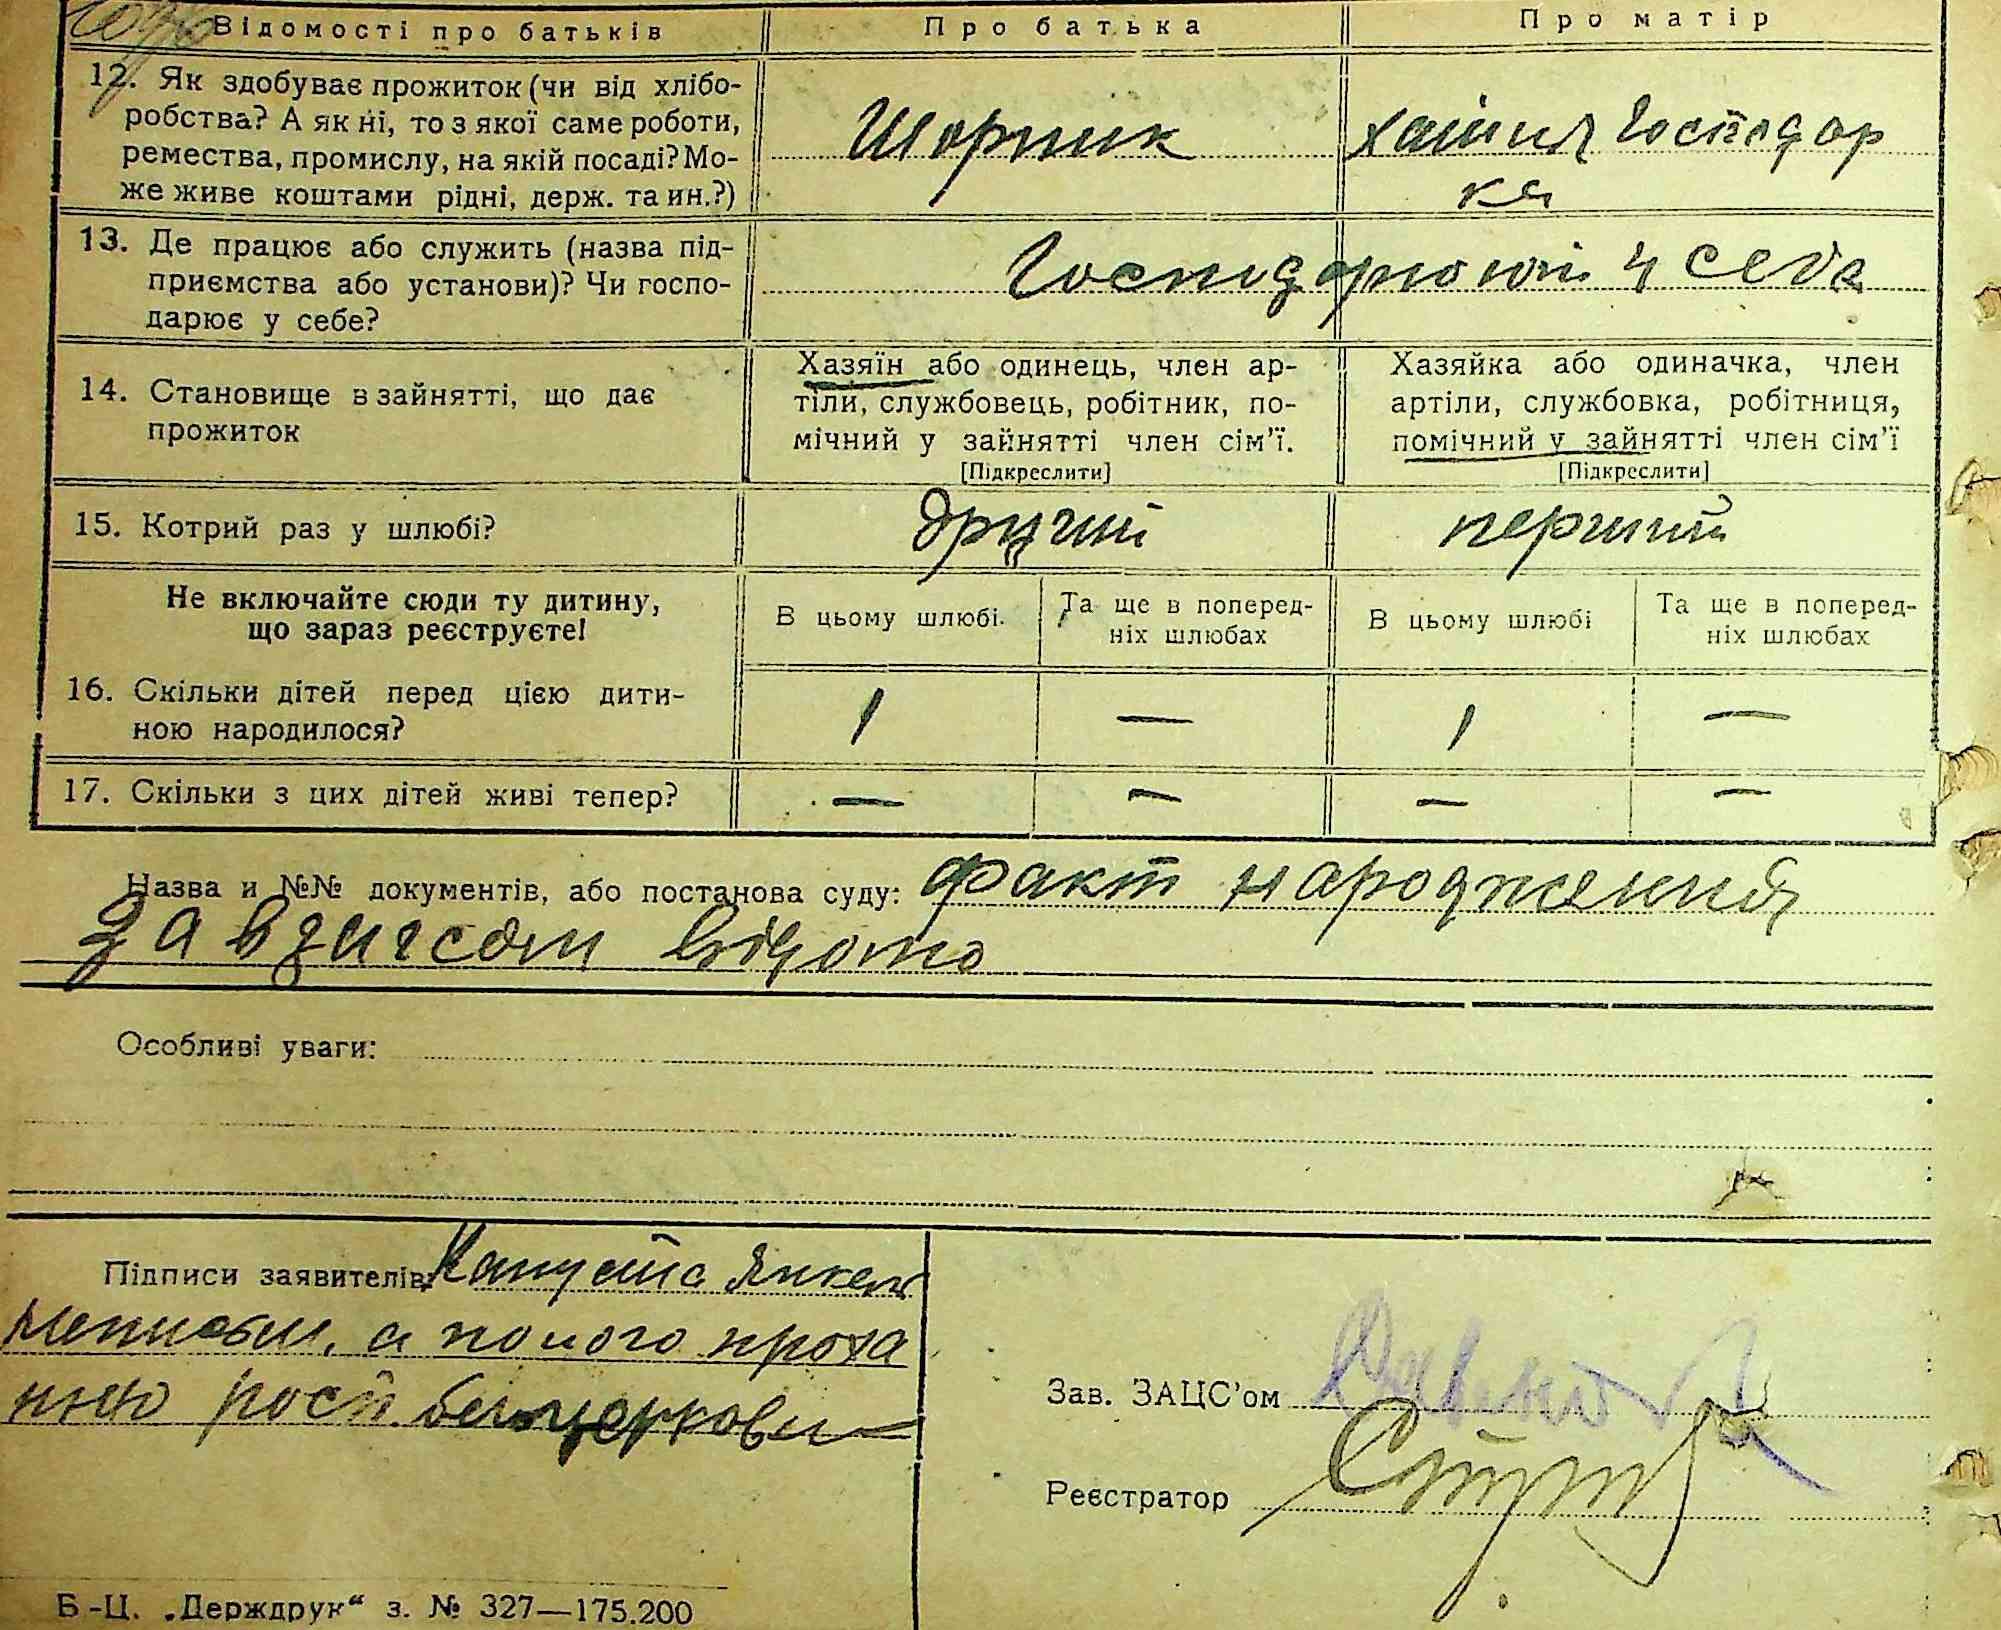 Відомості про батьків
Про батька
Про матір
12. Як здобуває прожиток (чи від хлібо-
робства? А як ні, то з якої саме роботи,
ремества, промислу, на якій посаді? Мо-
же живе коштами рідні, держ. та ин.?)
Шорник
хатня Господар
ка
13. Де працює або служить (назва під-
приємства або установи)? Чи госпо-
дарює у себе?
Господарюють у себе
14. Становище в зайнятті, що дає
прожиток
Хазяїн або одинець, член ар-
тіли, службовець, робітник, по-
мічний у зайнятті член сім’ї.
[Підкреслити]
Хазяйка або одиначка, член
артіли, службовка, робітниця,
помічний у зайнятті член сім’ї
[Підкреслити]
15. Котрий раз у шлюбі?
другий
перший
Не включайте сюди ту дитину,
що зараз реєструєте!
В цьому шлюбі.
Та ще в поперед-
ніх шлюбах
В цьому шлюбі
Та ще в поперед-
ніх шлюбах
16. Скільки дітей перед цією дити-
ною народилося?
1 — 1 —
17. Скільки з цих дітей живі тепер?
— — — —
Назва и №№ документів, або постанова суду: факт народження
загсом відомо
Особливі уваги:
Підписи заявителів: Капуста Янкель
а по його проха
нню росп.
Зав. ЗАЦС’ом
Реєстратор
Б-Ц. „Держдрук“ з. № 327—175.200